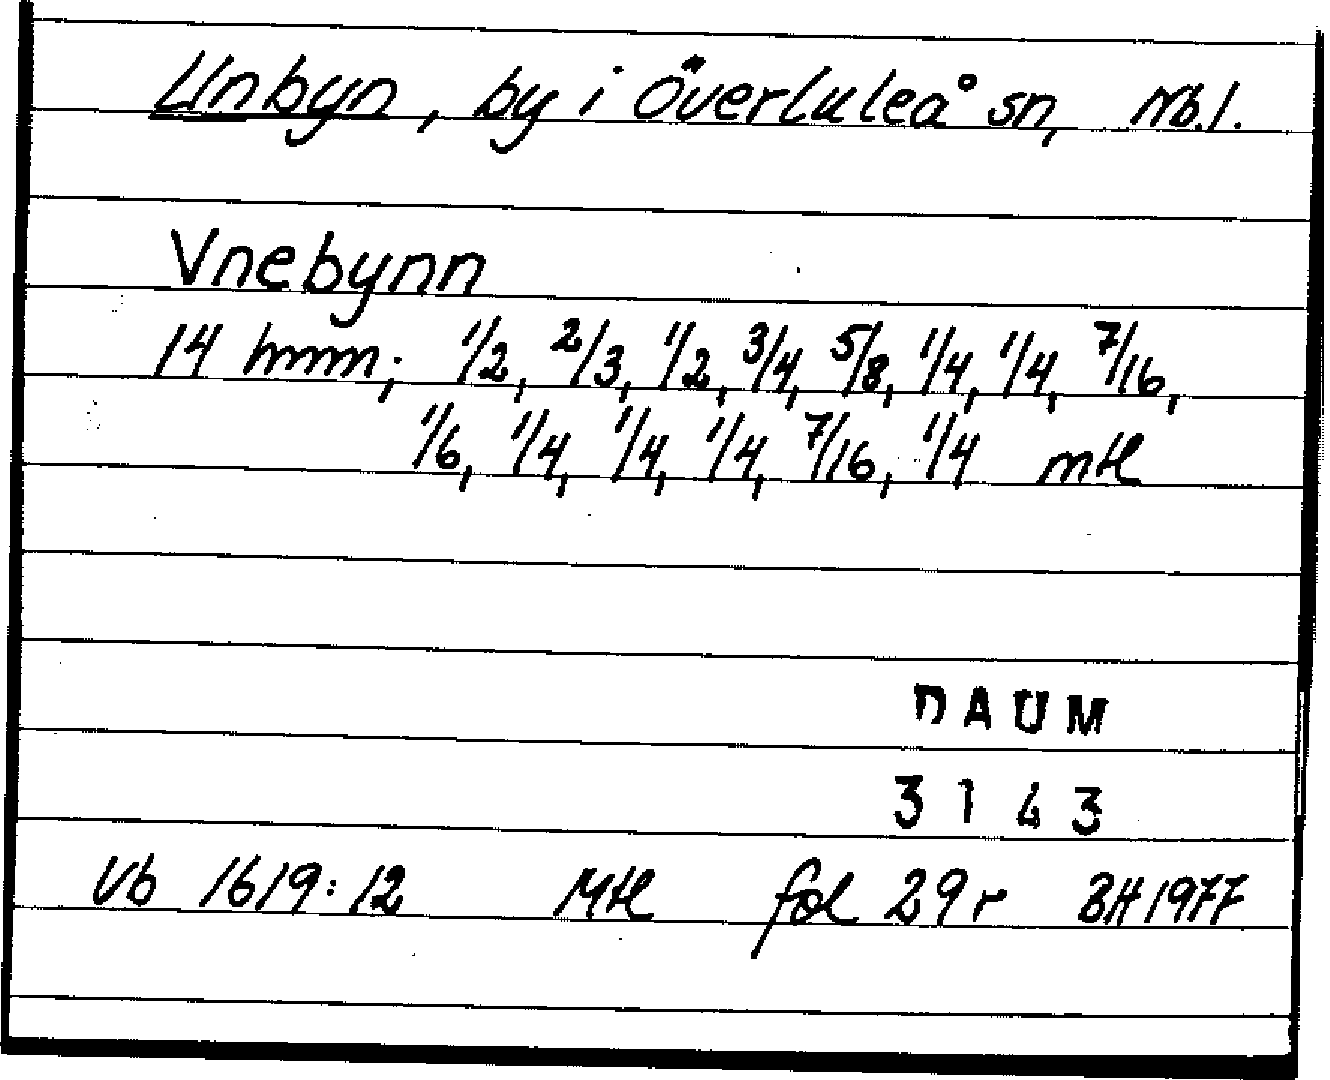 Unbyn, by i Överluleå sn, Nb.l.
Vnebynn
14 hmm; 1/2, 2/3, 1/2, 3/4, 5/8, 1/4, 1/4, 7/16,
1/6, 1/4, 1/4, 1/4, 7/16, 1/4 mtl
DAUM
3143
Vb 1619:12 Mtl fol 29r BH 1977